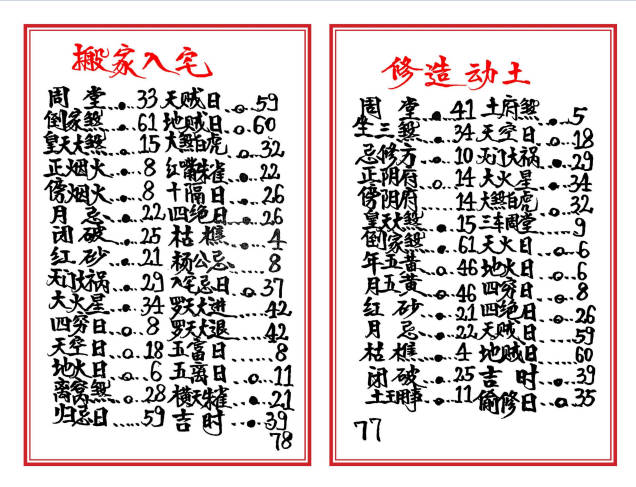 搬家入宅
周堂...33 天贼日...59
倒家煞...61 地贼日...60
皇天大煞...15 大煞白虎...32
正烟火...8 红嘴朱雀...22
傍烟火...8 十隔日...26
月忌...22 四绝日...26
闭破...25 枯樵...4
红砂...21 杨公忌...8
天门大祸...29 入宅忌日...37
大火星...34 罗天大进...42
四穷日...8 罗天大退...42
天空日...18 五富日...8
地火日...6 五离日...11
离窝煞...28 横天朱雀...21
归忌日...59 吉时...39
78
修造动土
周堂...41 土府煞...5
生三煞...34 天空日...18
忌修方...10 天门大祸...29
正阴府...14 大火星...34
傍阴府...14 大煞白虎...32
皇天大煞...15 三车周堂...9
倒家煞...61 天火日...6
年五黄...46 地火日...6
月五黄...46 四穷日...8
红砂...21 四绝日...26
月忌...22 天贼日...59
枯樵...4 地贼日...60
闭破...25 吉时...39
土王用事...11 偷修日...35
77